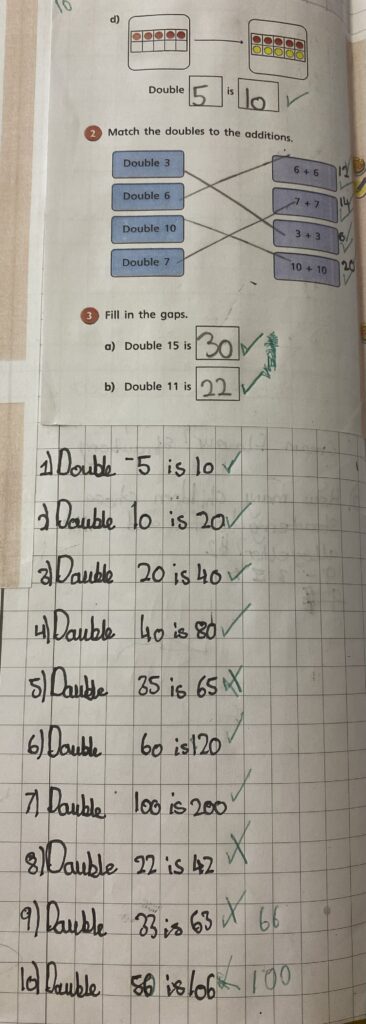 10
d)
Double 5 is 10
2 Match the doubles to the additions.
Double 3 6 + 6 12
Double 6 7 + 7 14
Double 10 3 + 3 6
Double 7 10 + 10 20
3 Fill in the gaps.
a) Double 15 is 30
b) Double 11 is 22
1) Double 5 is 10
2) Double 10 is 20
3) Double 20 is 40
4) Double 40 is 80
5) Double 35 is 65
6) Double 60 is 120
7) Double 100 is 200
8) Double 22 is 42
9) Double 33 is 63 66
10) Double 50 is 106 100